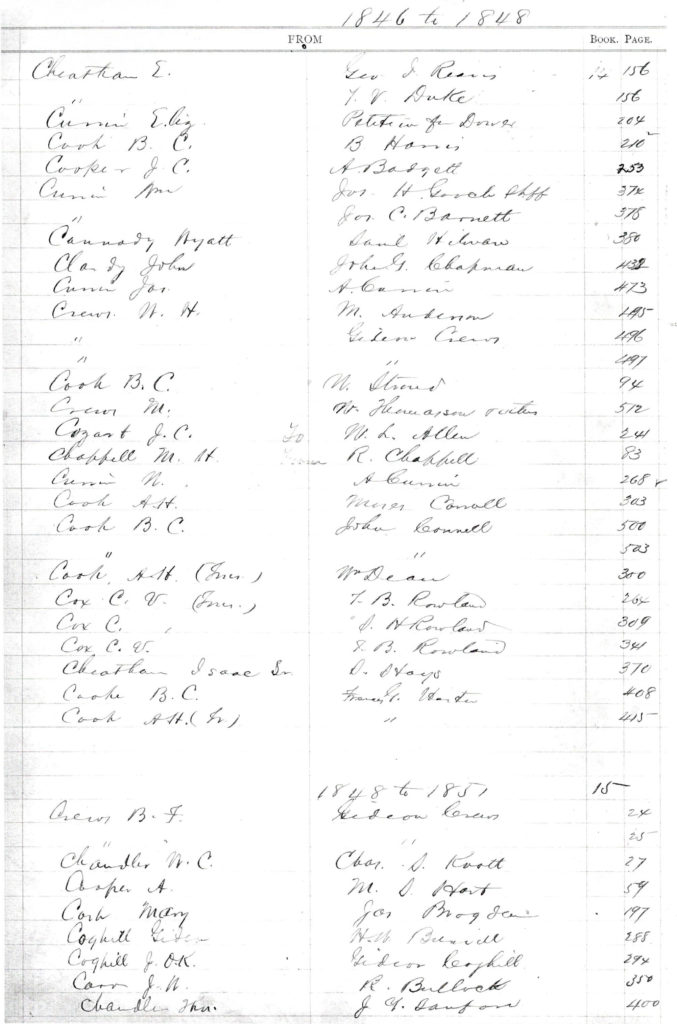 1846 to 1848
FROM BOOK. PAGE.
Cheatham E. Geo 14 156
" T. V. Duke 156
Currin Eliz Petition for Dower 204
Cook B. C. B Harris 210
Cooper J. C. A Badgett 253
Currin Wm Jos. H Gooch Shff 374
" Jos. C. Barnett 378
Cannady Wyatt Saml 380
Clardy John John G. Chapman 432
Currin Jas. A. Currin 473
Crews W. H. M. Anderson 495
" Gideon Crews 496
" " 497
Cook B. C. W. Stroud 94
Crews M. W. Thomasson 512
Cozart J. C. To W. L. Allen 241
Chappell M. H. R. Chappell 83
Currin N. A Currin 268
Cook A.H. Moses 303
Cook B. C. John Connell 500
" " 503
Cook A.H. Wm Dean 300
Cox C. V. T. B. Rowland 264
Cox C. S. H Rowland 309
Cox C. V. T. B. Rowland 341
Cheatham Isaac Sr D. Hays 370
Cooke B. C. 408
Cook A.H. " 415
1848 to 1851 15
Crews B. F. Gideon Crews 24
" " 25
Chandler W. C. Chas. S. Knott 27
Cooper A. M. D. Hart 59
Cash Mary Jas Brogden 197
Coghill Gideon 288
Coghill J. O.K. Gideon Coghill 294
Carr J. W. R. Bullock 350
Chandler Thos. J Y. Sanford 400